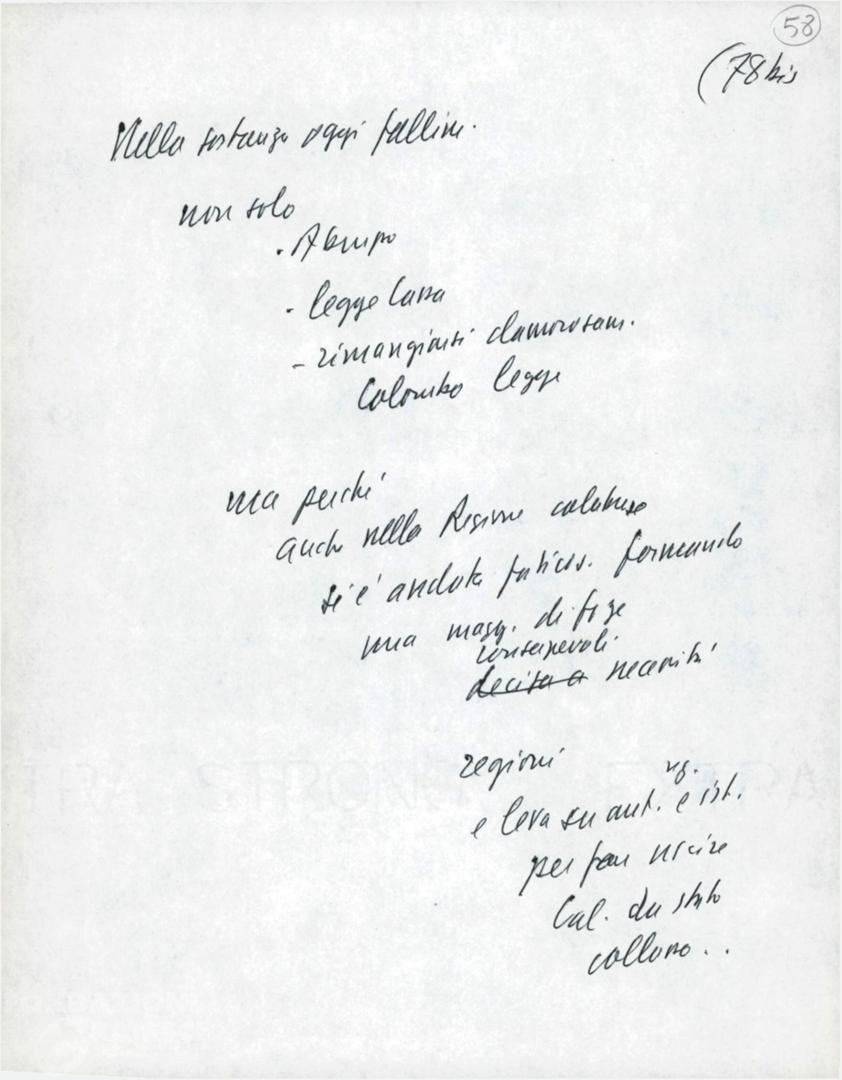 58
(78 bis
Nella sostanza oggi fallim.
non solo
. Abrupo
- legge Cassa
- rimangiarsi clamorosam.
Colombo legge
ma perché
anche nella Regione calabrese
si é andata faticos. formando
una magg. di forze
consapevoli
decisa a necessità
regioni
e leva su aut. e ist.
rg.
per far uscire
Cal. da stato
collasso..